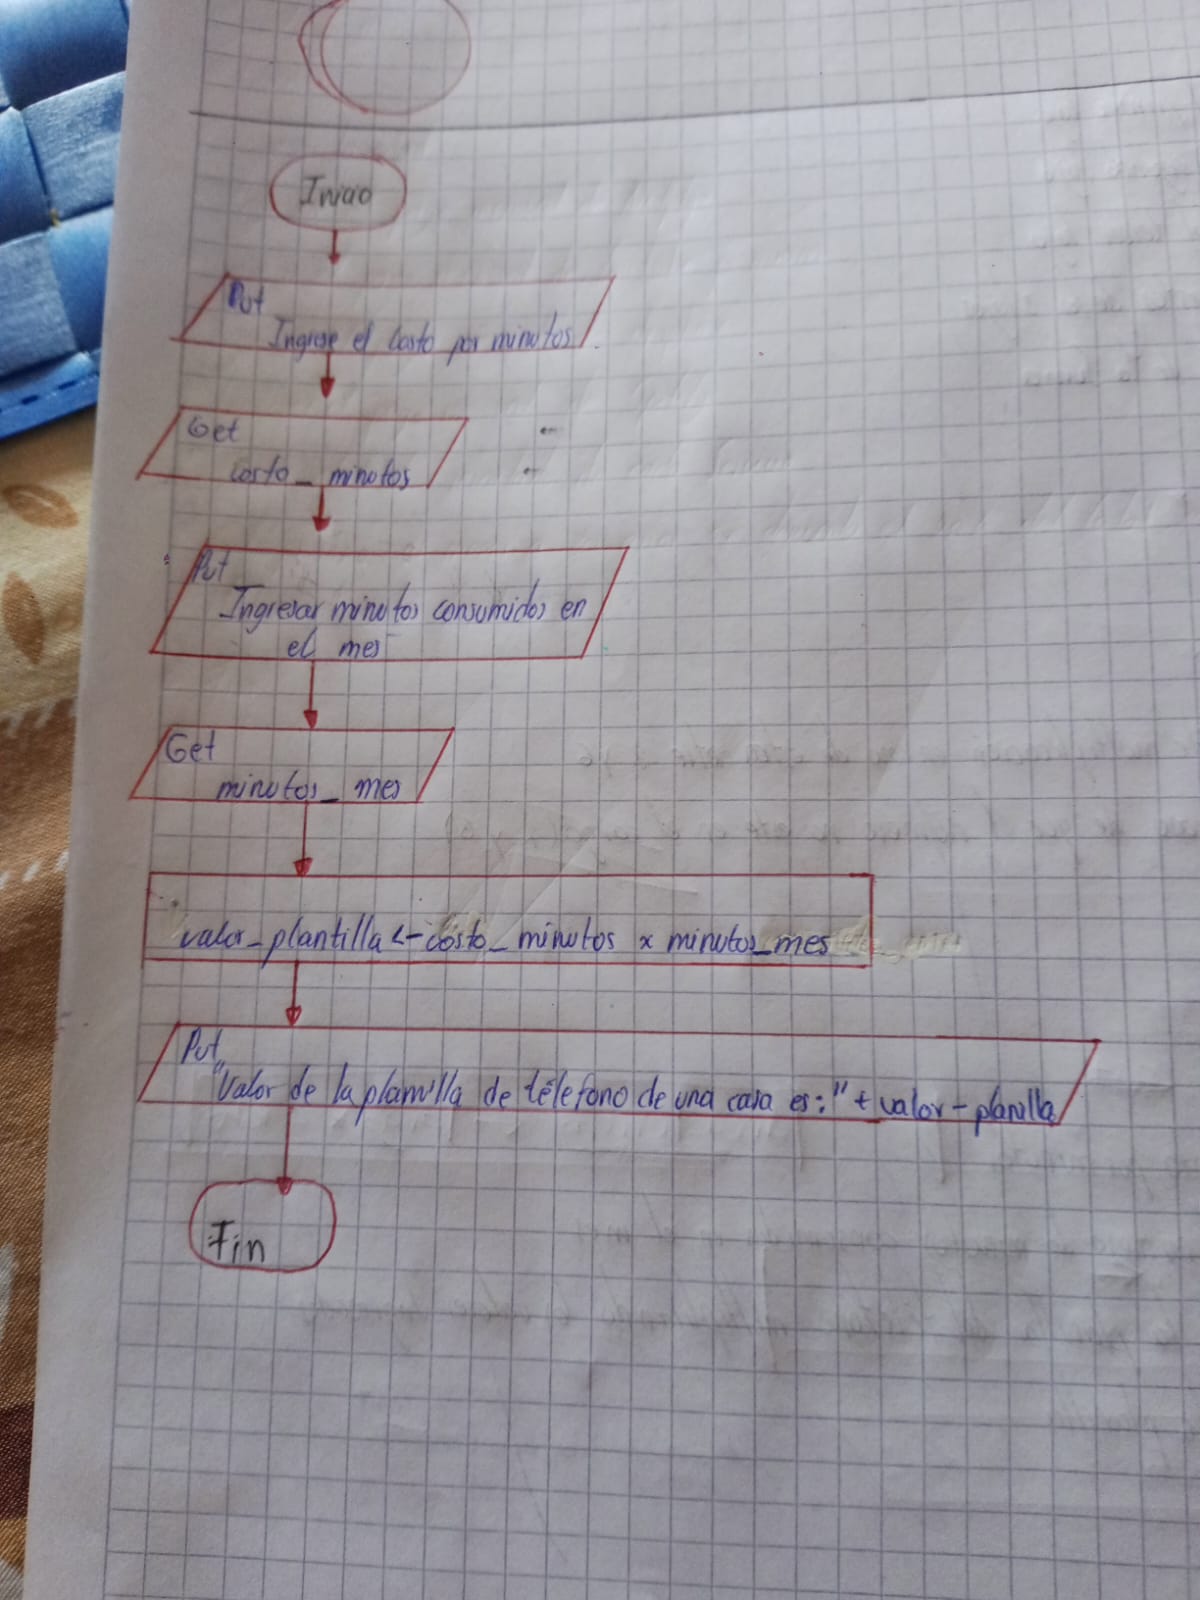 Inicio
Put
Ingrese el costo por minutos
Get
costo_ minutos
Put
Ingresar minutos consumidos en
el mes
Get
minutos_ mes
valor_plantilla <- costo_ minutos x minutos_mes
Put
"Valor de la planilla de télefono de una casa es:" + valor-planilla
Fin